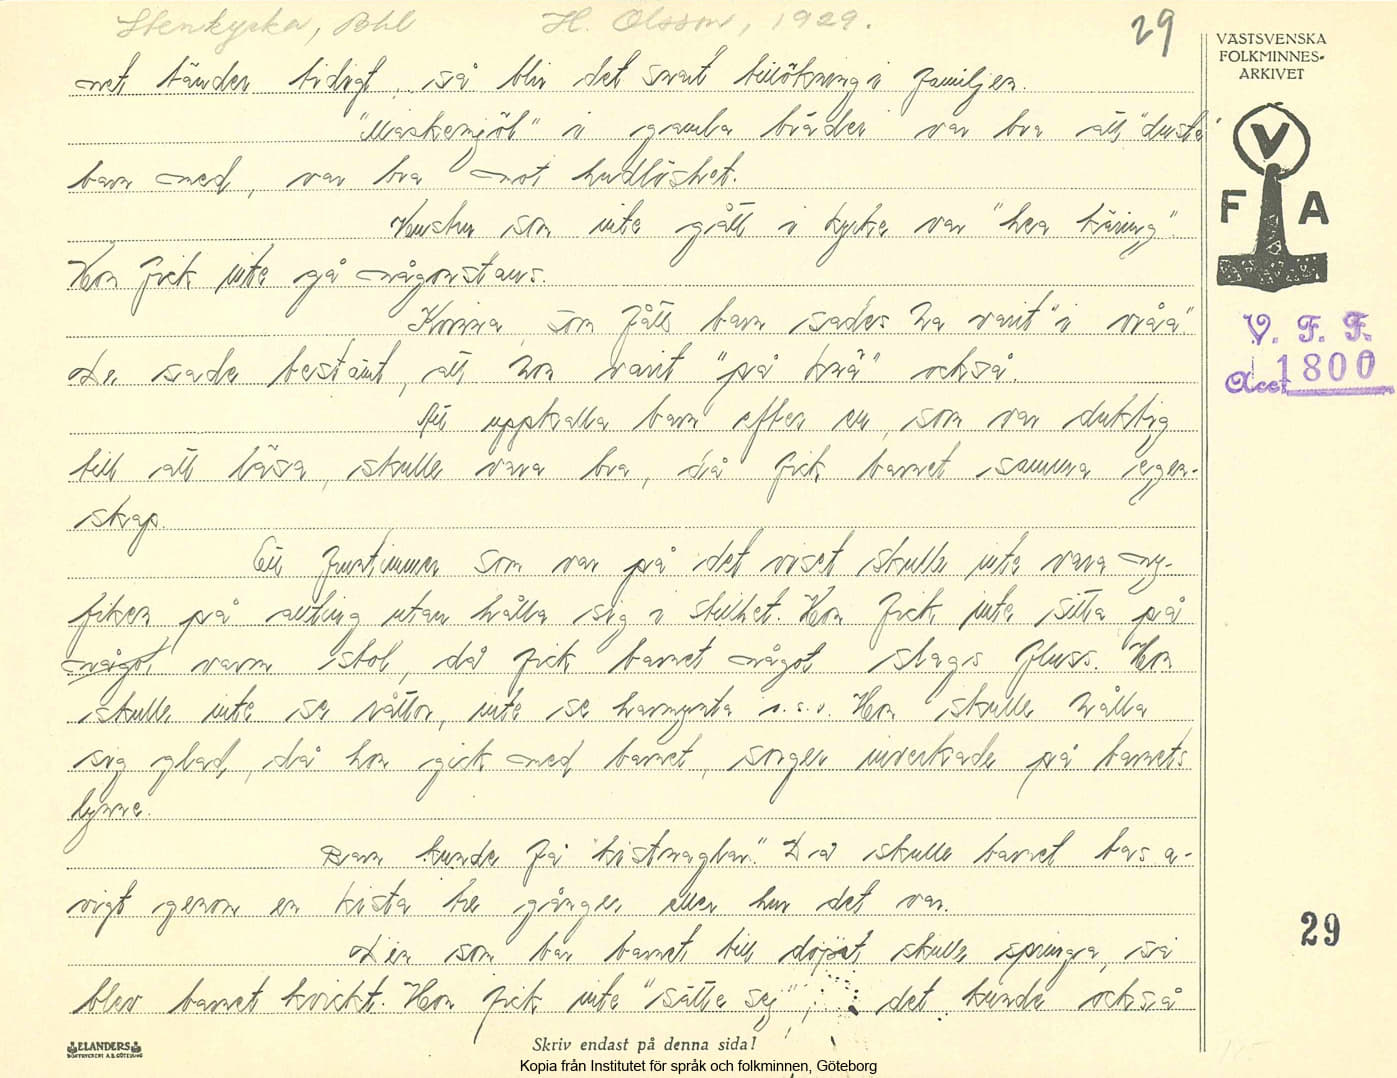 Stenkyrka, Bhl H. Olsson, 1929. 29
VÄSTSVENSKA
FOLKMINNES-
ARKIVET
net tänder tidigt, så blir det snart tillökning i familjen.
"Maskemjöl" i gamla bräder var bra att "dusta"
barn med, var bra mot hudlöshet.
Hustru som inte gått i kyrka var "hea käring".
Hon fick inte gå någonstans.
Kvinna, som fått barn sades ha varit "i vråa"
De sade bestämt, att hon varit "på knä" också.
Att uppkalla barn efter en, som var duktig
till att läsa, skulle vara bra, då fick barnet samma egen-
skap.
Ett fruntimmer som var på det viset skulle inte vara ny-
fiken på allting utan hålla sig i stillhet. Hon fick inte sitta på
något varm stol, då fick barnet något slags fluss. Hon
skulle inte se råttor, inte se harmynta o.s.v. Hon skulle hålla
sig glad, då hon gick med barnet, sorger inverkade på barnets
lynne.
Barn kunde få "kistnaglar." Då skulle barnet bas a-
vigt genom en kista tre gånger eller hur det var.
Den som bar barnet till dopet skulle springa, så
blev barnet kvickt. Hon fick inte "sätte sej", det kunde också
V
F A
V. F. F.
Acc. 1800
29
ELANDERS
BOKTRYCKERI A.B. GÖTEBORG
Skriv endast på denna sida!
Kopia från Institutet för språk och folkminnen, Göteborg